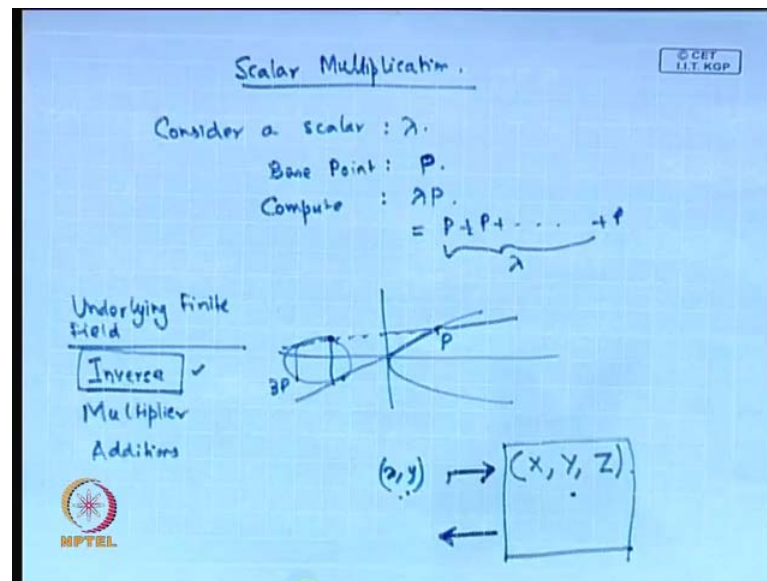 Scalar Multiplication.
© CET
I.I.T. KGP
Consider a scalar : λ.
Base Point : P.
Compute : λP.
= P+P+ . . . . +P
λ
Underlying Finite
Field
Inverse ✓
Multiplier
Additions
P
3P
(x,y) → (X, Y, Z)
←
NPTEL